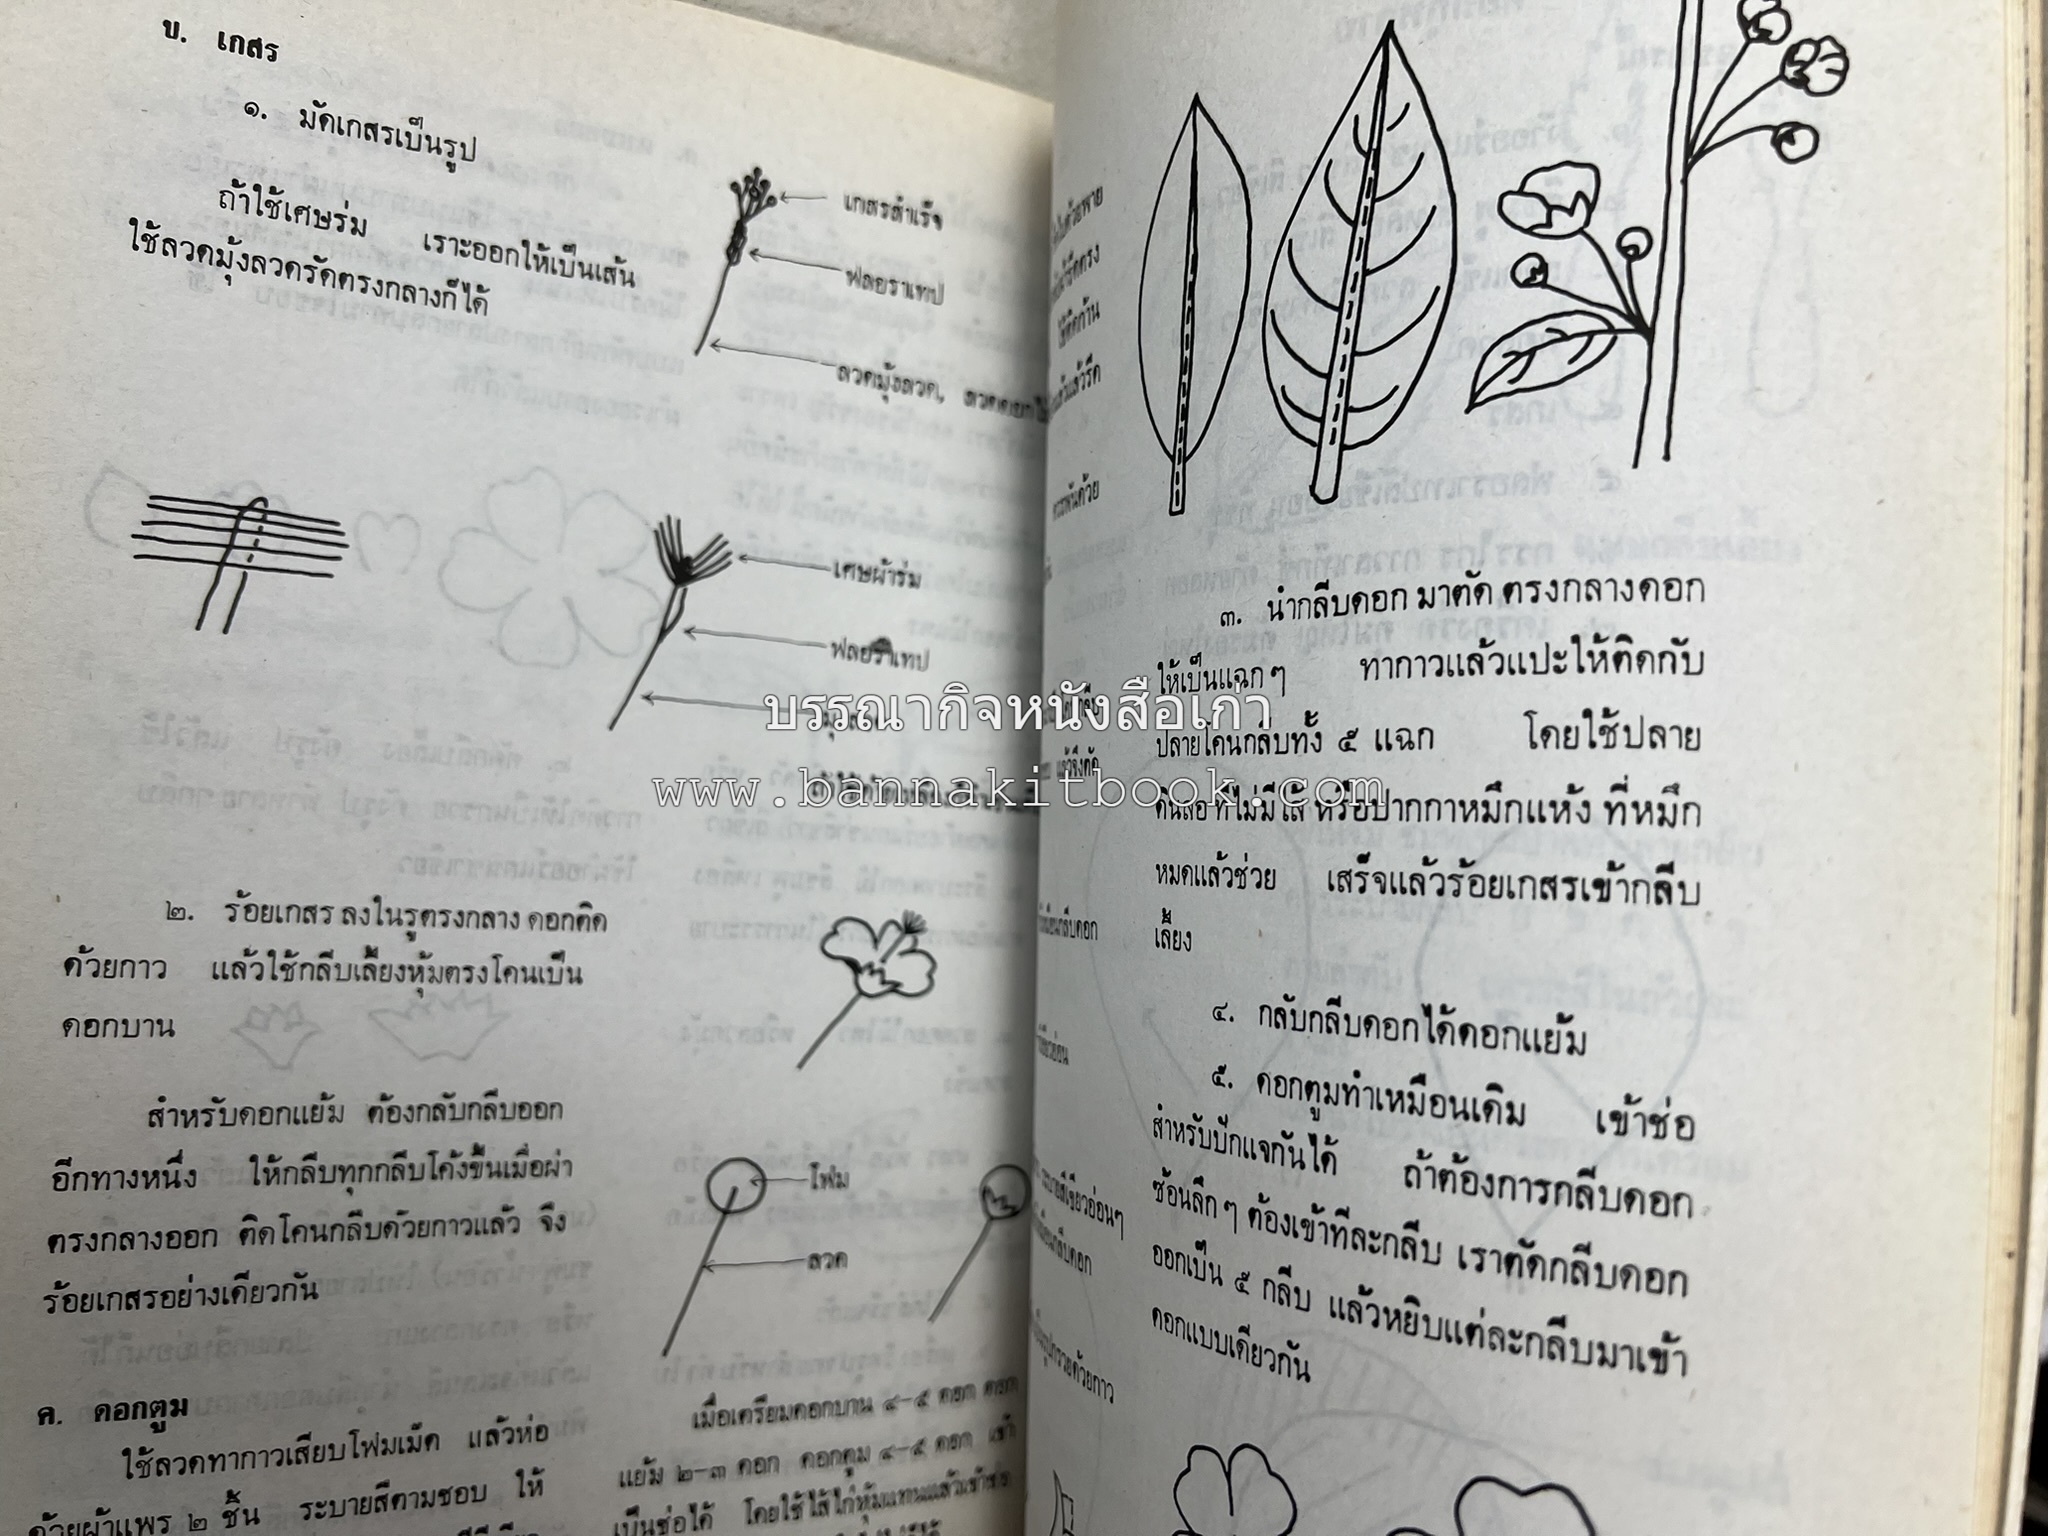 ข. เกสร
๑. มัดเกสรเป็นรูป
ถ้าใช้เศษร่ม เราะออกให้เป็นเส้น
ใช้ลวดมุ้งลวดรัดตรงกลางก็ได้
เกสรสำเร็จ
ฟลอราเทป
ลวดมุ้งลวด, ลวดดอกไม้
เศษผ้าร่ม
ฟลอราเทป
๒. ร้อยเกสร ลงในรูตรงกลาง ดอกติด
ด้วยกาว แล้วใช้กลีบเลี้ยงหุ้มตรงโคนเป็น
ดอกบาน
สำหรับดอกแย้ม ต้องกลับกลีบออก
อีกทางหนึ่ง ให้กลีบทุกกลีบโค้งขึ้นเมื่อผ่า
ตรงกลางออก ติดโคนกลีบด้วยกาวแล้ว จึง
ร้อยเกสรอย่างเดียวกัน
โฟม
ลวด
ค. ดอกตูม
ใช้ลวดทากาวเสียบโฟมเม็ด แล้วห่อ
ด้วยผ้าแพร ๒ ชิ้น ระบายสีตามชอบ ให้
เมื่อเตรียมดอกบาน ๔-๕ ดอก ดอก
แย้ม ๒-๓ ดอก ดอกตูม ๔-๕ ดอก เข้า
เป็นช่อได้ โดยใช้ไส้ไก่หุ้มแทนแล้วเข้าช่อ
๓. นำกลีบดอก มาตัด ตรงกลางดอก
ให้เป็นแฉก ๆ ทากาวแล้วแปะให้ติดกับ
ปลายโคนกลีบทั้ง ๕ แฉก โดยใช้ปลาย
ดินสอ ที่ไม่มีไส้ หรือปากกาหมึกแห้ง ที่หมึก
หมดแล้วช่วย เสร็จแล้วร้อยเกสรเข้ากลีบ
เลี้ยง
๔. กลับกลีบดอกได้ดอกแย้ม
๕. ดอกตูมทำเหมือนเดิม เข้าช่อ
สำหรับปักแจกันได้ ถ้าต้องการกลีบดอก
ซ้อนลึก ๆ ต้องเข้าทีละกลีบ เราตัดกลีบดอก
ออกเป็น ๕ กลีบ แล้วหยิบแต่ละกลีบมาเข้า
ดอกแบบเดียวกัน
บรรณากิจหนังสือเก่า
www.bannakitbook.com